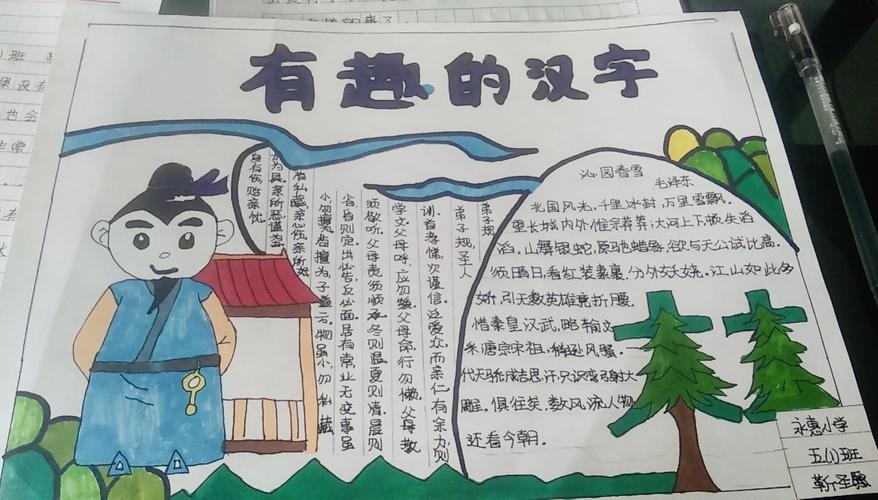 有趣的汉字
弟子规
弟子规,圣人
训,首孝悌,次谨信,泛爱众,而亲仁,有余力,则
学文,父母呼,应勿缓,父母命,行勿懒,父母教
须敬听,父母责,须顺承,冬则温,夏则清,晨则
省,昏则定,出必告,反必面,居有常,业无变,事虽
小,勿擅为,苟擅为,子道亏,物虽小,勿私藏
苟私藏,亲心伤,亲所好
力为具,亲所恶,谨为去
身有伤,贻亲忧
沁园春雪
毛泽东
北国风光,千里冰封,万里雪飘。
望长城内外,惟余莽莽,大河上下,顿失滔
滔,山舞银蛇,原驰蜡象,欲与天公试比高。
须晴日,看红装素裹,分外妖娆。江山如此多
娇,引无数英雄竟折腰。
惜秦皇汉武,略输文
采,唐宗宋祖,稍逊风骚。一
代天骄,成吉思汗,只识弯弓射大
雕。俱往矣,数风流人物
还看今朝。
永惠小学
五(1)班